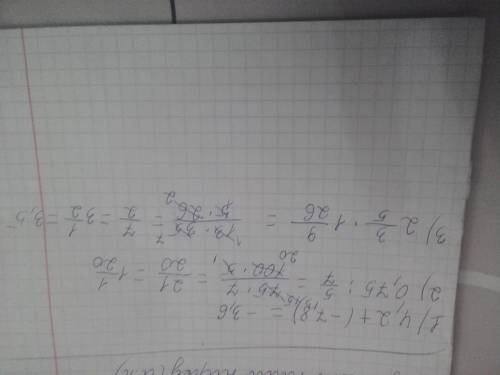 1) 4,2+(-7,8) = -3,6
2) 0,75 : 5/7 = 75·7/100·5 = 21/20 = 1 1/20
3) 2 3/5 · 1 9/26 = 13·35/5·26 = 7/2 = 3 1/2 = 3,5